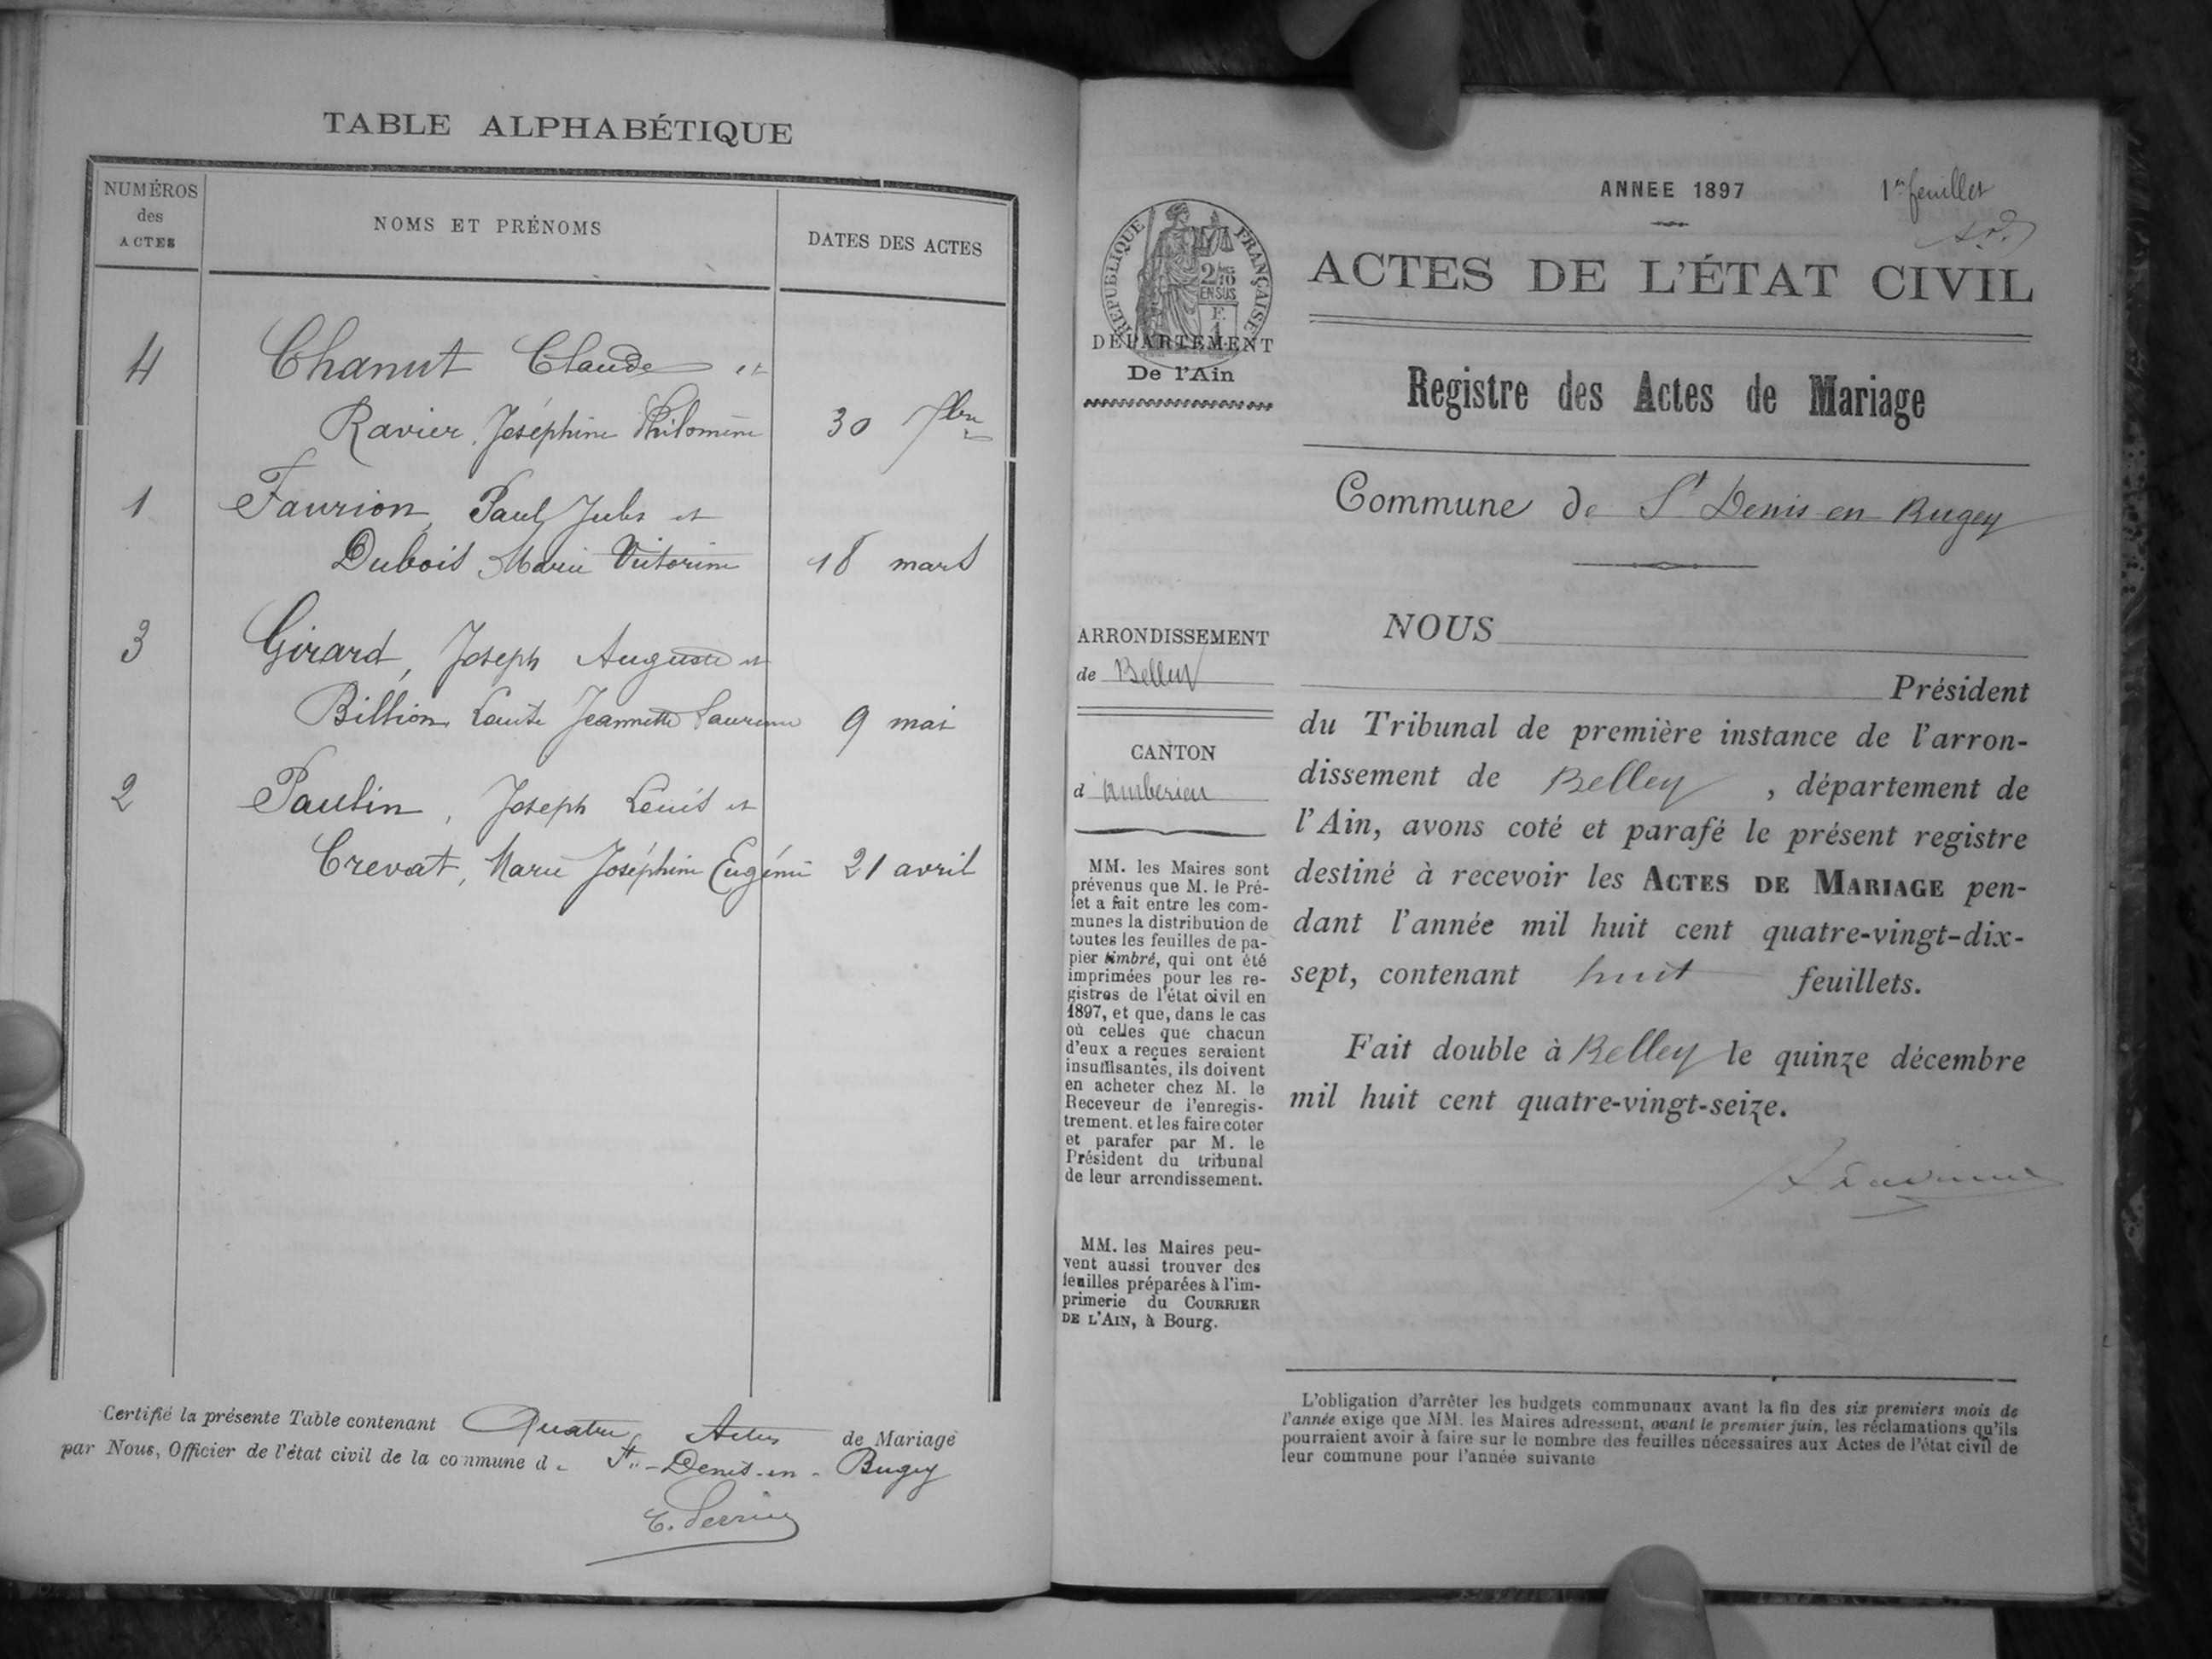 TABLE ALPHABÉTIQUE
NUMÉROS
des
ACTES
NOMS ET PRÉNOMS
DATES DES ACTES
4 Chanut Claude et
Ravier, Joséphine Philomène 30 7bre
1 Faurion, Paul Jules et
Dubois Marie Victorine 18 mars
3 Girard, Joseph Auguste et
Billion Jeannette 9 mai
2 Paulin, Joseph Louis et
Crevat, Marie Joséphine Eugénie 21 avril
Certifié la présente Table contenant Quatre Actes de Mariage
par Nous, Officier de l'état civil de la commune de St-Denis-en-Bugey
ANNEE 1897
1er feuillet
RÉPUBLIQUE FRANÇAISE
2/10
EN SUS
F.
1
DÉPARTEMENT
De l'Ain
ACTES DE L'ÉTAT CIVIL
Registre des Actes de Mariage
Commune de St Denis en Bugey
ARRONDISSEMENT
de Belley
CANTON
d'Ambérieu
MM. les Maires sont
prévenus que M. le Pré-
fet a fait entre les com-
munes la distribution de
toutes les feuilles de pa-
pier timbré, qui ont été
imprimées pour les re-
gistres de l'état civil en
1897, et que, dans le cas
où celles que chacun
d'eux a reçues seraient
insuffisantes, ils doivent
en acheter chez M. le
Receveur de l'enregis-
trement. et les faire coter
et parafer par M. le
Président du tribunal
de leur arrondissement.
MM. les Maires peu-
vent aussi trouver des
feuilles préparées à l'im-
primerie du COURRIER
DE L'AIN, à Bourg.
NOUS
Président
du Tribunal de première instance de l'arron-
dissement de Belley, département de
l'Ain, avons coté et parafé le présent registre
destiné à recevoir les ACTES DE MARIAGE pen-
dant l'année mil huit cent quatre-vingt-dix-
sept, contenant huit feuillets.
Fait double à Belley le quinze décembre
mil huit cent quatre-vingt-seize.
L'obligation d'arrêter les budgets communaux avant la fin des six premiers mois de
l'année exige que MM. les Maires adressent, avant le premier juin, les réclamations qu'ils
pourraient avoir à faire sur le nombre des feuilles nécessaires aux Actes de l'état civil de
leur commune pour l'année suivante